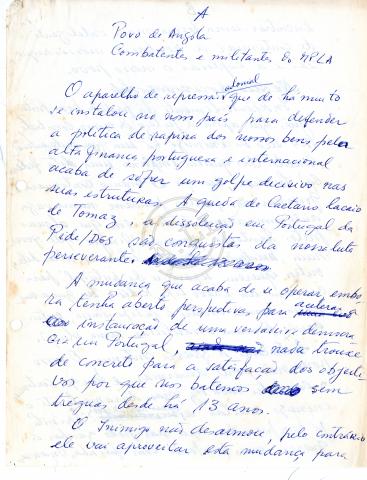 A
Povo de Angola
Combatentes e militantes do MPLA
O aparelho de repressão colonial que de há muito
se instalou no nosso país para defender
a política de rapina dos nossos bens pela
alta finança portuguesa e internacional
acaba de sofrer um golpe decisivo nas
suas estruturas. A queda de Caetano lacaio
de Tomaz, a dissolução em Portugal da
Pide/DGS são conquistas da nossa luta
perseverante
A mudança que acaba de se operar, embo
ra tenha aberto perspectivas para acelerar a
instauração de uma verdadeira democra
cia em Portugal, nada trouxe
de concreto para a satisfação dos objecti
vos por que nos batemos sem
tréguas desde há 13 anos.
O Inimigo não desarmou, pelo contrário
ele vai aproveitar esta mudança para